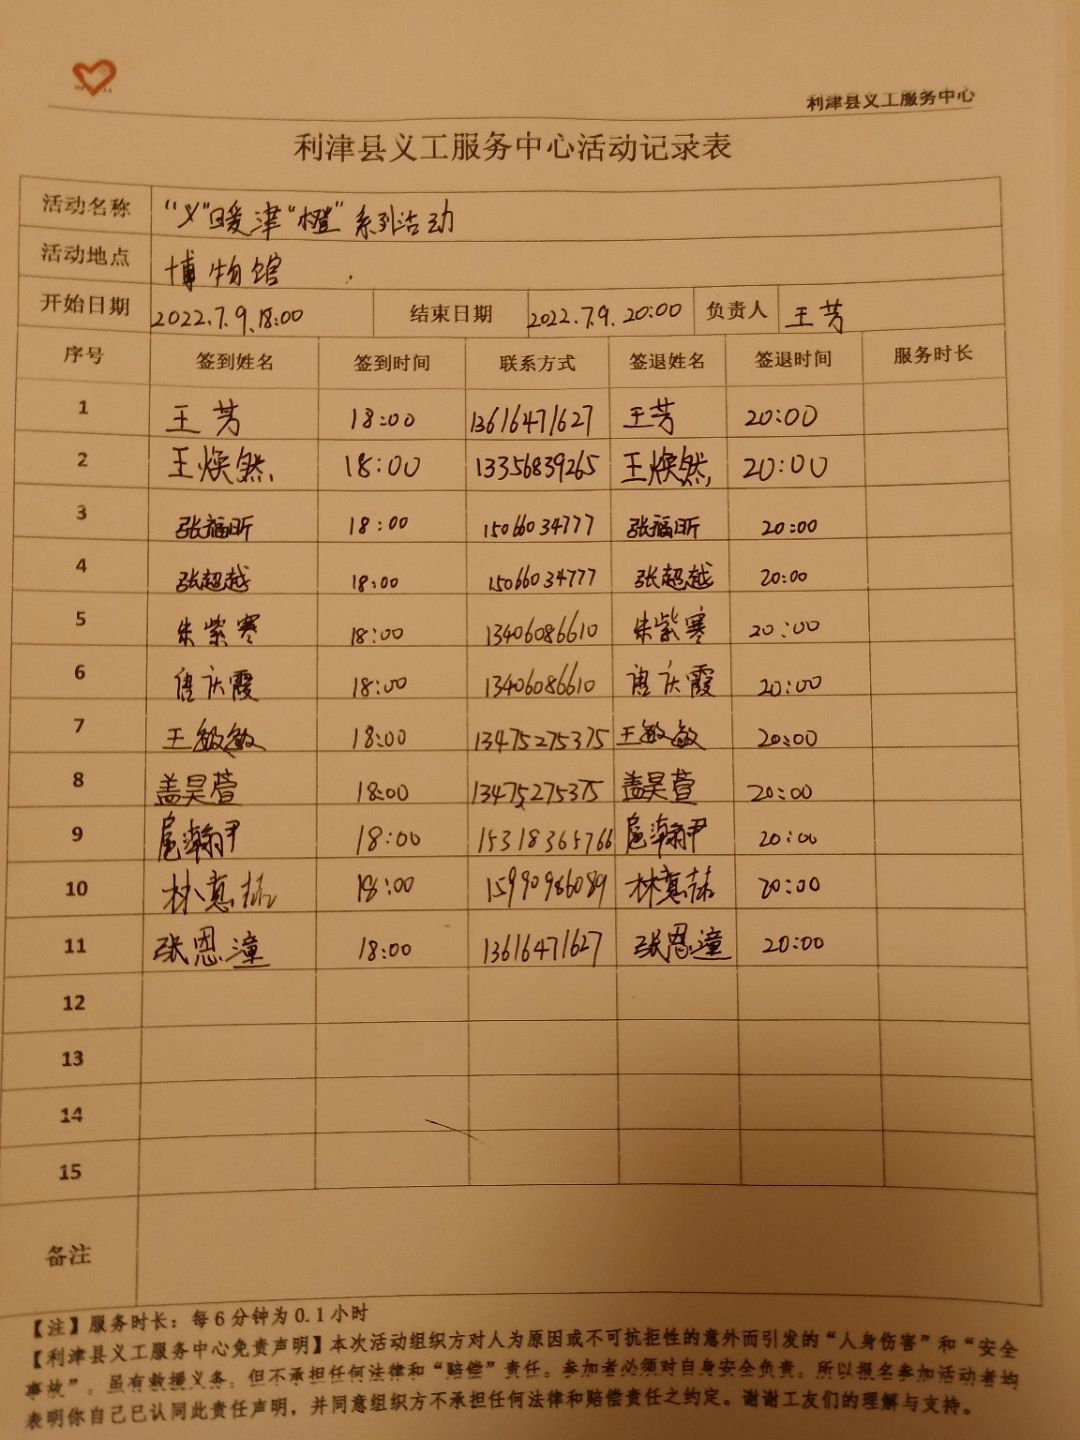 利津县义工服务中心
利津县义工服务中心活动记录表
活动名称 “义”暖津“橙”系列活动
活动地点 博物馆
开始日期 2022.7.9.18:00 结束日期 2022.7.9.20:00 负责人 王芳
序号 签到姓名 签到时间 联系方式 签退姓名 签退时间 服务时长
1 王芳 18:00 13616471627 王芳 20:00
2 王焕然 18:00 13356839265 王焕然 20:00
3 张福昕 18:00 15066034777 张福昕 20:00
4 张超越 18:00 15066034777 张超越 20:00
5 朱紫寒 18:00 13406086610 朱紫寒 20:00
6 唐庆霞 18:00 13406086610 唐庆霞 20:00
7 王敏敏 18:00 13475275375 王敏敏 20:00
8 盖昊萱 18:00 13475275375 盖昊萱 20:00
9 扈瀚尹 18:00 15318365766 扈瀚尹 20:00
10 林 18:00 15990986089 林 20:00
11 张恩潼 18:00 13616471627 张恩潼 20:00
12
13
14
15
备注
【注】服务时长：每6分钟为0.1小时
【利津县义工服务中心免责声明】本次活动组织方对人为原因或不可抗拒性的意外而引发的“人身伤害”和“安全
事故”，虽有救援义务，但不承担任何法律和“赔偿”责任。参加者必须对自身安全负责，所以报名参加活动者均
表明你自己已认同此责任声明，并同意组织方不承担任何法律和赔偿责任之约定。谢谢工友们的理解与支持。